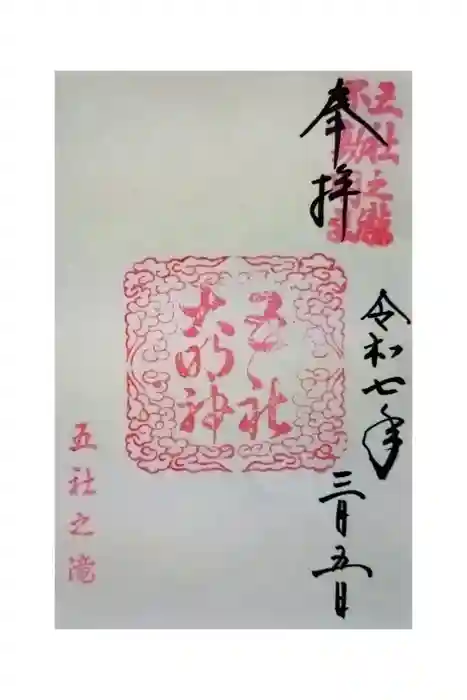 五社之瀧
不動明王
奉拝
令和七年
三月五日
五社
大明神
五社之滝